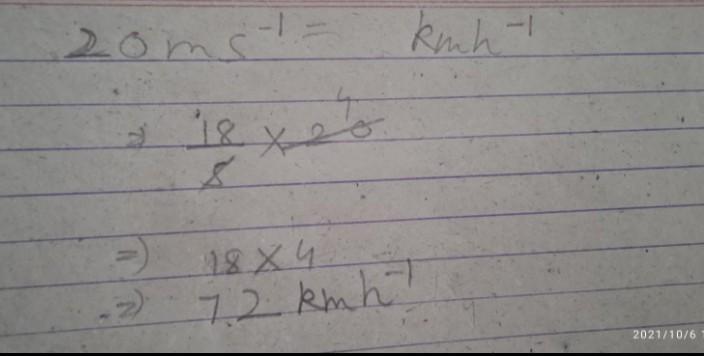 20 ms⁻¹ = kmh⁻¹
⇒ 18/5 × 20 4
⇒ 18 × 4
⇒ 72 kmh⁻¹
2021/10/6